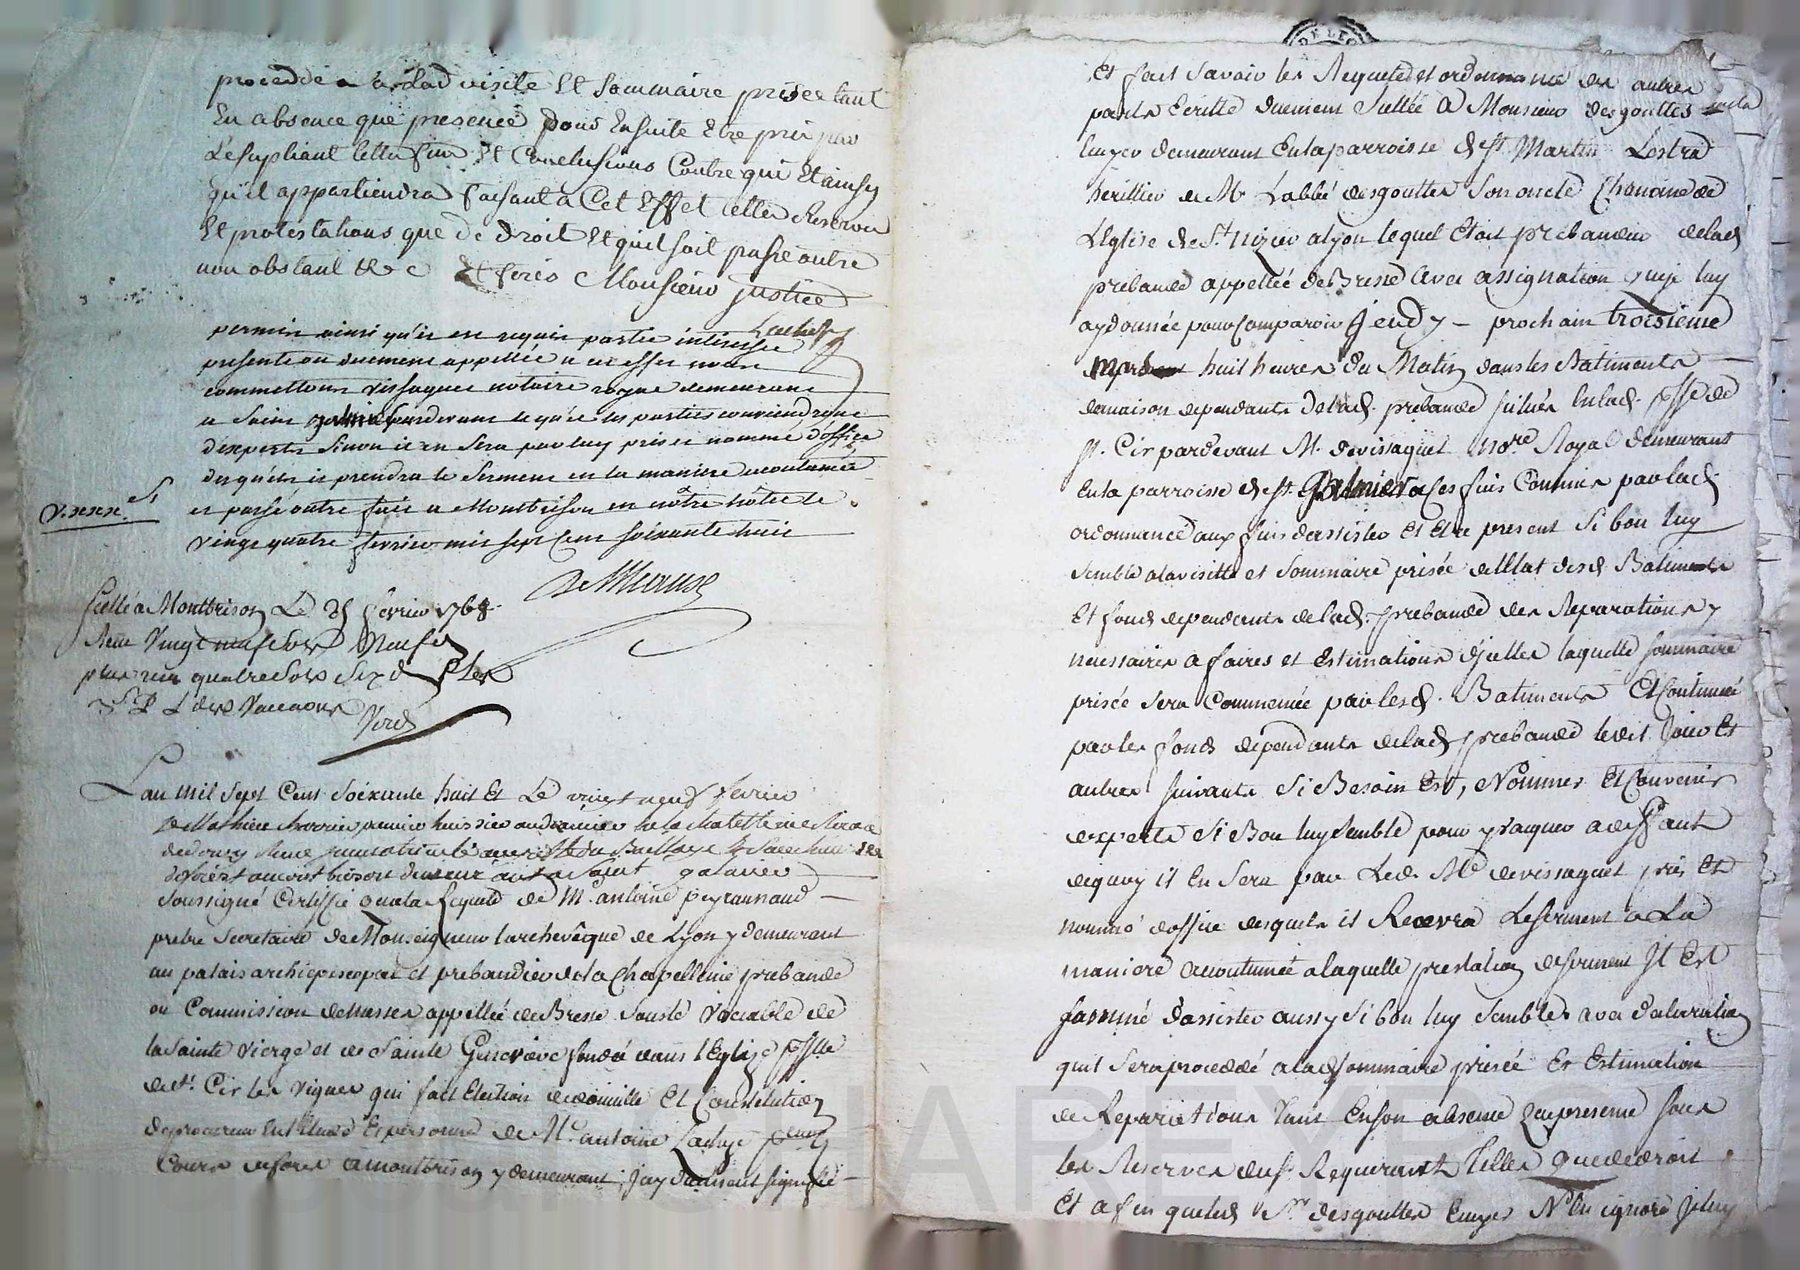 proceddé a lad visite Et Sommaire prisée tant
En absence que presence pour Ensuite Etre pris par
Lesupliant telles fins Et Conclusions Contre qui Et ainsy
qu'il appartiendra faisant a Cet Effet telles Reserves
Et protestations que de droit Et quil soit passé outre
non obstant &c Et ferés Monsieur justice
Lachize
permis ainsi qu'il est requis partie intéressée
présente ou duement appellée a cet effet nous
commettons vissaguet notaire royal demeurant
a Saint galmier pardevant lequel les parties conviendront
d'experts Sinon il en Sera par luy pris et nommé d'office
desquels il prendra le Serment en la maniere accoutumée
et passé outre fait a Montbrison en notre hôtel le
vingt quatre fevrier mil sept cent soixante huit
Scellé a Montbrison Le 25 fevrier 1768.
Reçu Vingt neuf sols Neuf
plus reçu quatre Sols Six d
L'an mil Sept Cent Soixante huit Et Le vingt neuf fevrier
demeurant a Saint galmier
Soussigné Certiffie qua la Requete de M. antoine peyrannaud
pretre Secretaire de Monseigneur l'archevêque de Lyon y demeurant
au palais archiepiscopal et prebandier de la Chapellenie prebande
ou Commission de Messes appellée de Bresse Sous le Vocable de
la Sainte vierge et de Sainte Genevieve fondée dans l'Eglize psslle
de St. Cir les vignes qui fait Election de domicille Et Constitution
de procureur En l'etude Et personne de Me. antoine Lachize pcureur
Cours de forez a montbrison y demeurant; jay duement signiffié
Et fait savoir les Requete et ordonnance des autres
parts Ecritte duement Scellée A Monsieur desgouttes
Ecuyer demeurant En la parroisse de St. Martin Lestra
heritier de Mr. L'abbé desgouttes Son oncle Chanoine de
L'Eglise de St. nizier a lyon lequel Etoit prebandier de lad
prebande appellée de Bresse avec assignation que je luy
ay donnée pour Comparoir Jeudy – prochain troisieme
mars huit heures du Matin dans les Batiments
de maison dependants de lad. prebande située En lad. psse de
St. Cir pardevant M. de vissaguet nore Royal demeurant
En la parroisse de St. Galmier a ses fins Commis par lad.
ordonnance aux fins d'assister Et Etre present Si bon luy
Semble a la visitte et Sommaire prisée de l'Etat desd. Batiments
Et fonds dependents de lad. prebande des Reparations y
necessaires a faires et Estimations d'jcelles laquelle Sommaire
prisée Sera Commencée par lesd. Batiments Et Continuée
par les fonds dépendants de lad prebande ledit Jour Et
autres suivants Si Besoin Est, Nommer Et Convenir
d'experts Si Bon luy Semble pour y vaquer a deffaut
de quoy il En Sera par Led. Me de vissaguet pris Et
nommé d'office desquels il Recevra Le serment a La
maniere accoutumée a laquelle prestation de serment Il Est
Sommé d'assister aussy Si bon luy Semble avec declaration
quil Sera procedé a lad Sommaire prisée Et Estimation
de Reparations Tant En son absence quen presence Sous
les Reserves dud. Sr. Requerant Telles que de droit
Et a fin que led Sr. desgouttes Ecuyer N'En ignore Je luy